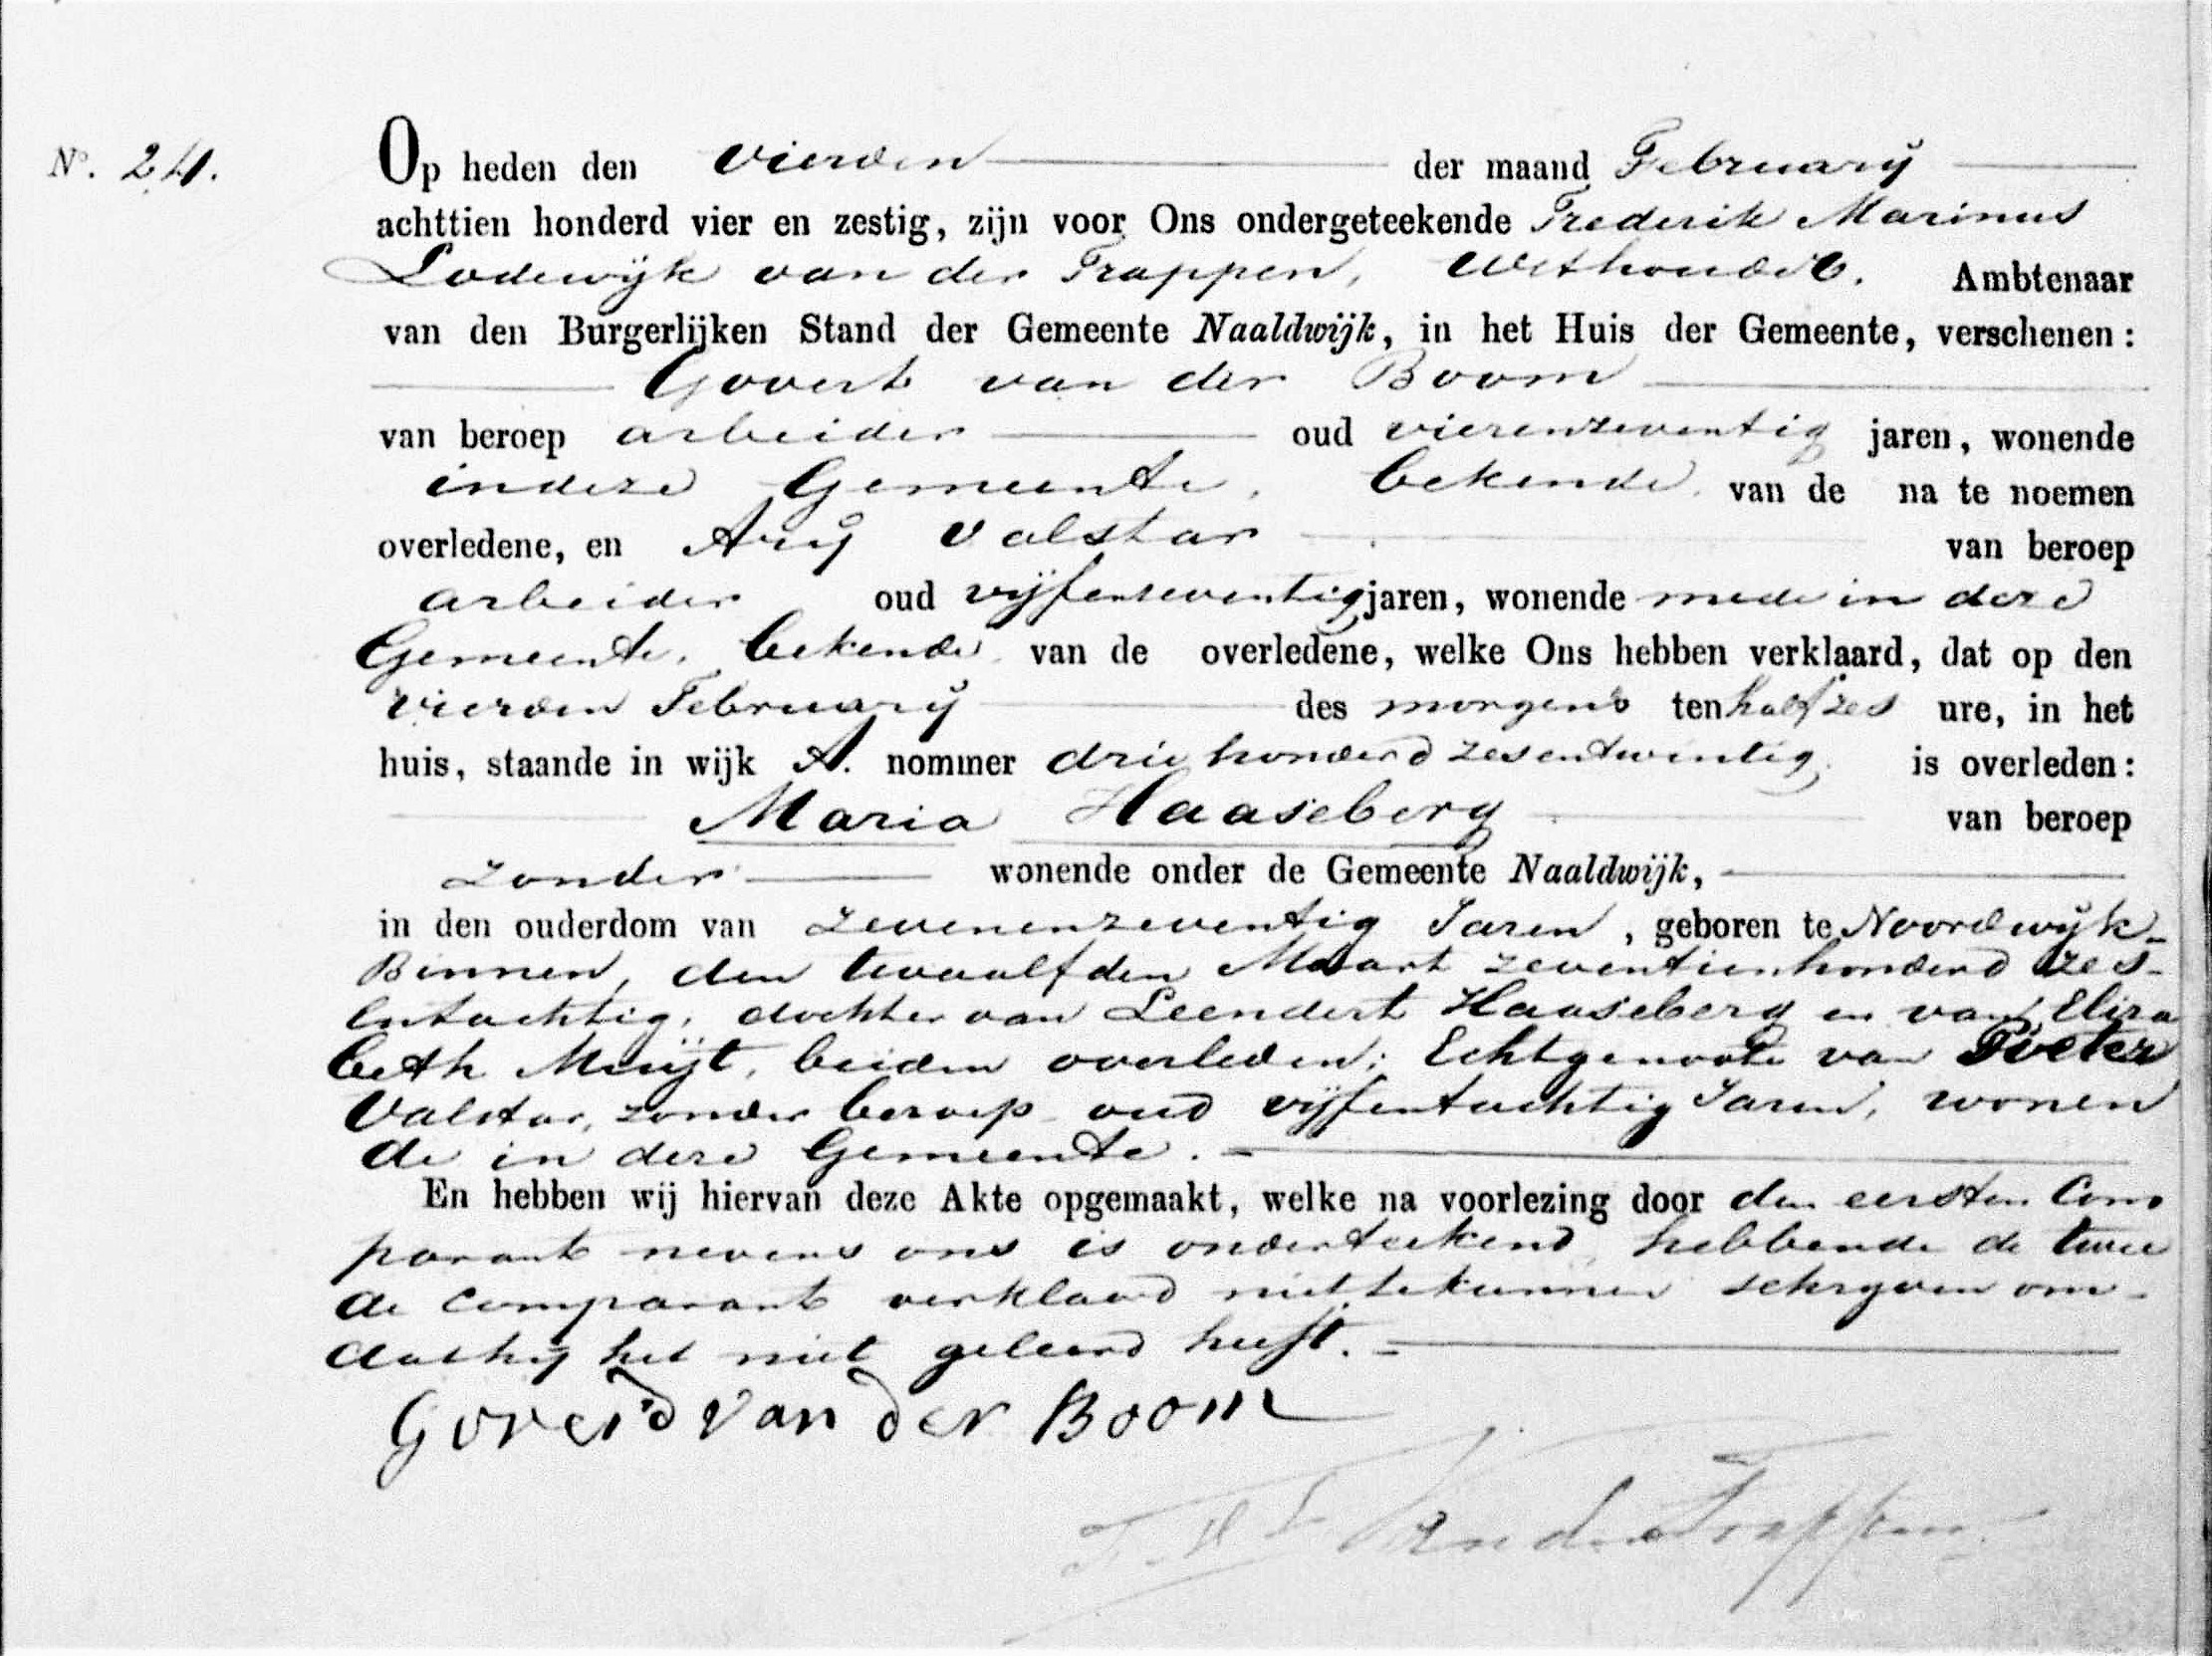 No. 24.
Op heden den vierden der maand February
achttien honderd vier en zestig, zijn voor Ons ondergeteekende Frederik Marinus
Lodewyk van der Trappen, Wethouder. Ambtenaar
van den Burgerlijken Stand der Gemeente Naaldwijk, in het Huis der Gemeente, verschenen:
Govert van der Boom
van beroep arbeider oud vierenzeventig jaren, wonende
indeze Gemeente, bekende van de na te noemen
overledene, en Ary Valstar van beroep
arbeider oud vyfenzeventig jaren, wonende mede in deze
Gemeente, bekende van de overledene, welke Ons hebben verklaard, dat op den
vierden February des morgens ten half zes ure, in het
huis, staande in wijk A. nommer driehonderd zesentwintig is overleden:
Maria Haaseberg van beroep
zonder wonende onder de Gemeente Naaldwijk,
in den ouderdom van zevenenzeventig Jaren, geboren te Noordwyk-
Binnen, den twaalfden Maart zeventienhonderd zes-
entachtig, dochter van Leendert Haaseberg en van Eliza
beth Muyt, beiden overleden; Echtgenoote van Pieter
Valstar, zonder beroep oud vyfentachtig Jaren, wonen
de in deze Gemeente. -
En hebben wij hiervan deze Akte opgemaakt, welke na voorlezing door den eersten Com
parant nevens ons is onderteekend, hebbende de twee
de Comparant verklaard niet te kunnen schryven om-
dat hy het niet geleerd heeft. -
Goverd van der Boom
F. M. L. Van der Trappen